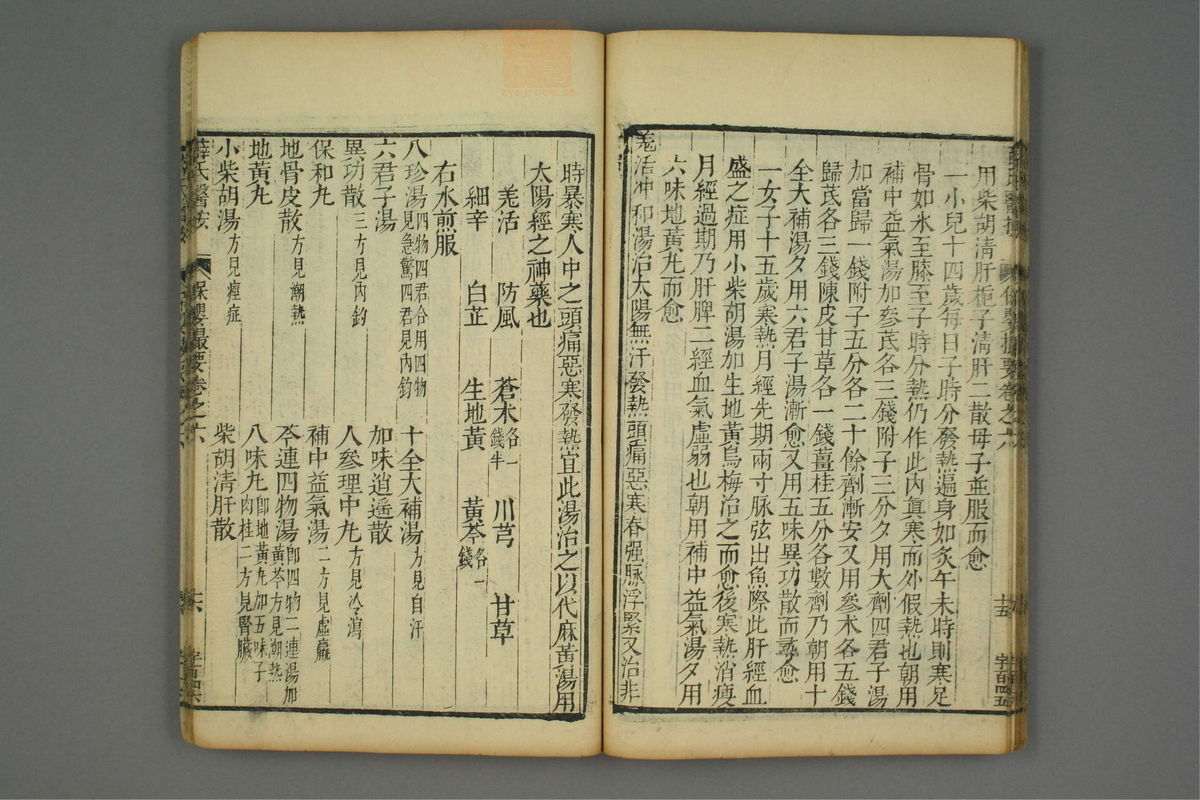 用柴胡清肝梔子清肝二散母子並服而愈
一小兒十四歲每日子時分發熱遍身如炙午未時則寒足
骨如氷至膝至子時分熱仍作此內眞寒而外假熱也朝用
補中益氣湯加參芪各三錢附子三分夕用大劑四君子湯
加當歸一錢附子五分各二十餘劑漸安又用參术各五錢
歸芪各三錢陳皮甘草各一錢薑桂五分各數劑乃朝用十
全大補湯夕用六君子湯漸愈又用五味異功散而尋愈
一女子十五歲寒熱月經先期兩寸脉弦出魚際此肝經血
盛之症用小柴胡湯加生地黃烏梅治之而愈後寒熱消瘦
月經過期乃肝脾二經血氣虛弱也朝用補中益氣湯夕用
六味地黃丸而愈
羌活冲和湯治太陽無汗發熱頭痛惡寒脊强脉浮緊又治非
時暴寒人中之頭痛惡寒發熱宜此湯治之以代麻黃湯用
太陽經之神藥也
羌活 防風 蒼术各一錢半 川芎 甘草
細辛 白芷 生地黃 黃芩各一錢
右水煎服
八珍湯四物四君合用四物見急驚四君見內鈞 十全大補湯方見自汗
六君子湯 加味逍遙散
異功散三方見內鈞 人參理中丸方見冷瀉
保和丸 補中益氣湯二方見虛羸
地骨皮散方見潮熱 芩連四物湯卽四物二連湯加黃芩方見潮熱
地黃丸 八味丸卽地黃丸加五味子肉桂二方見腎臟
小柴胡湯方見痙症 柴胡清肝散
薛氏醫按 保嬰撮要卷之六 十六